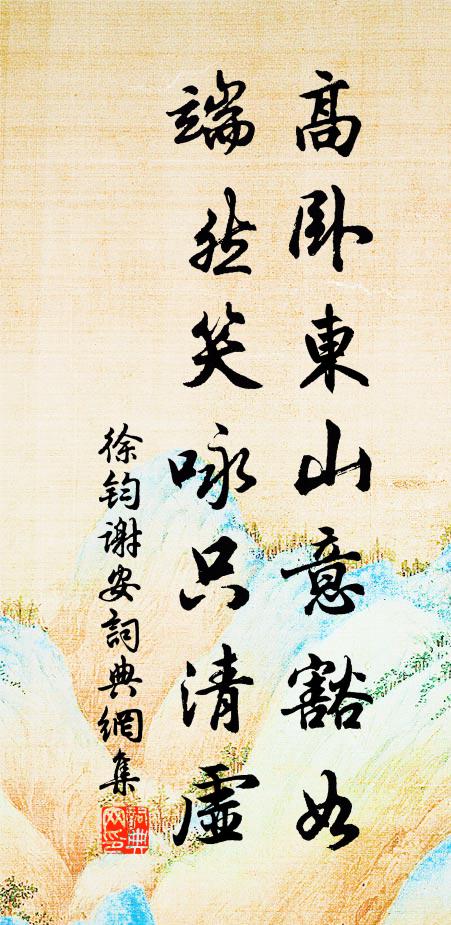 高卧東山意豁如
端然笑咏只清虛
徐钧謝安詞典網集
詞典網印